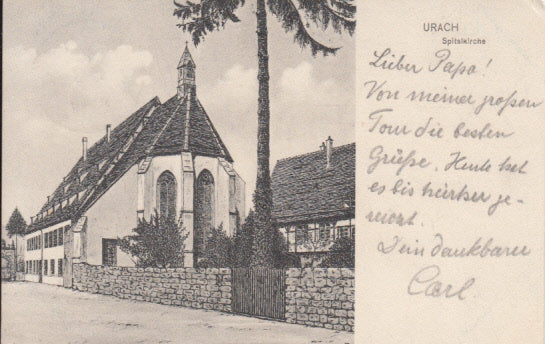 URACH
Spitalkirche
Lieber Papa!
Von meiner großen
Tour die besten
Grüße. Heute hat
es bis hierher ge-
reicht.
Dein dankbarer
Carl